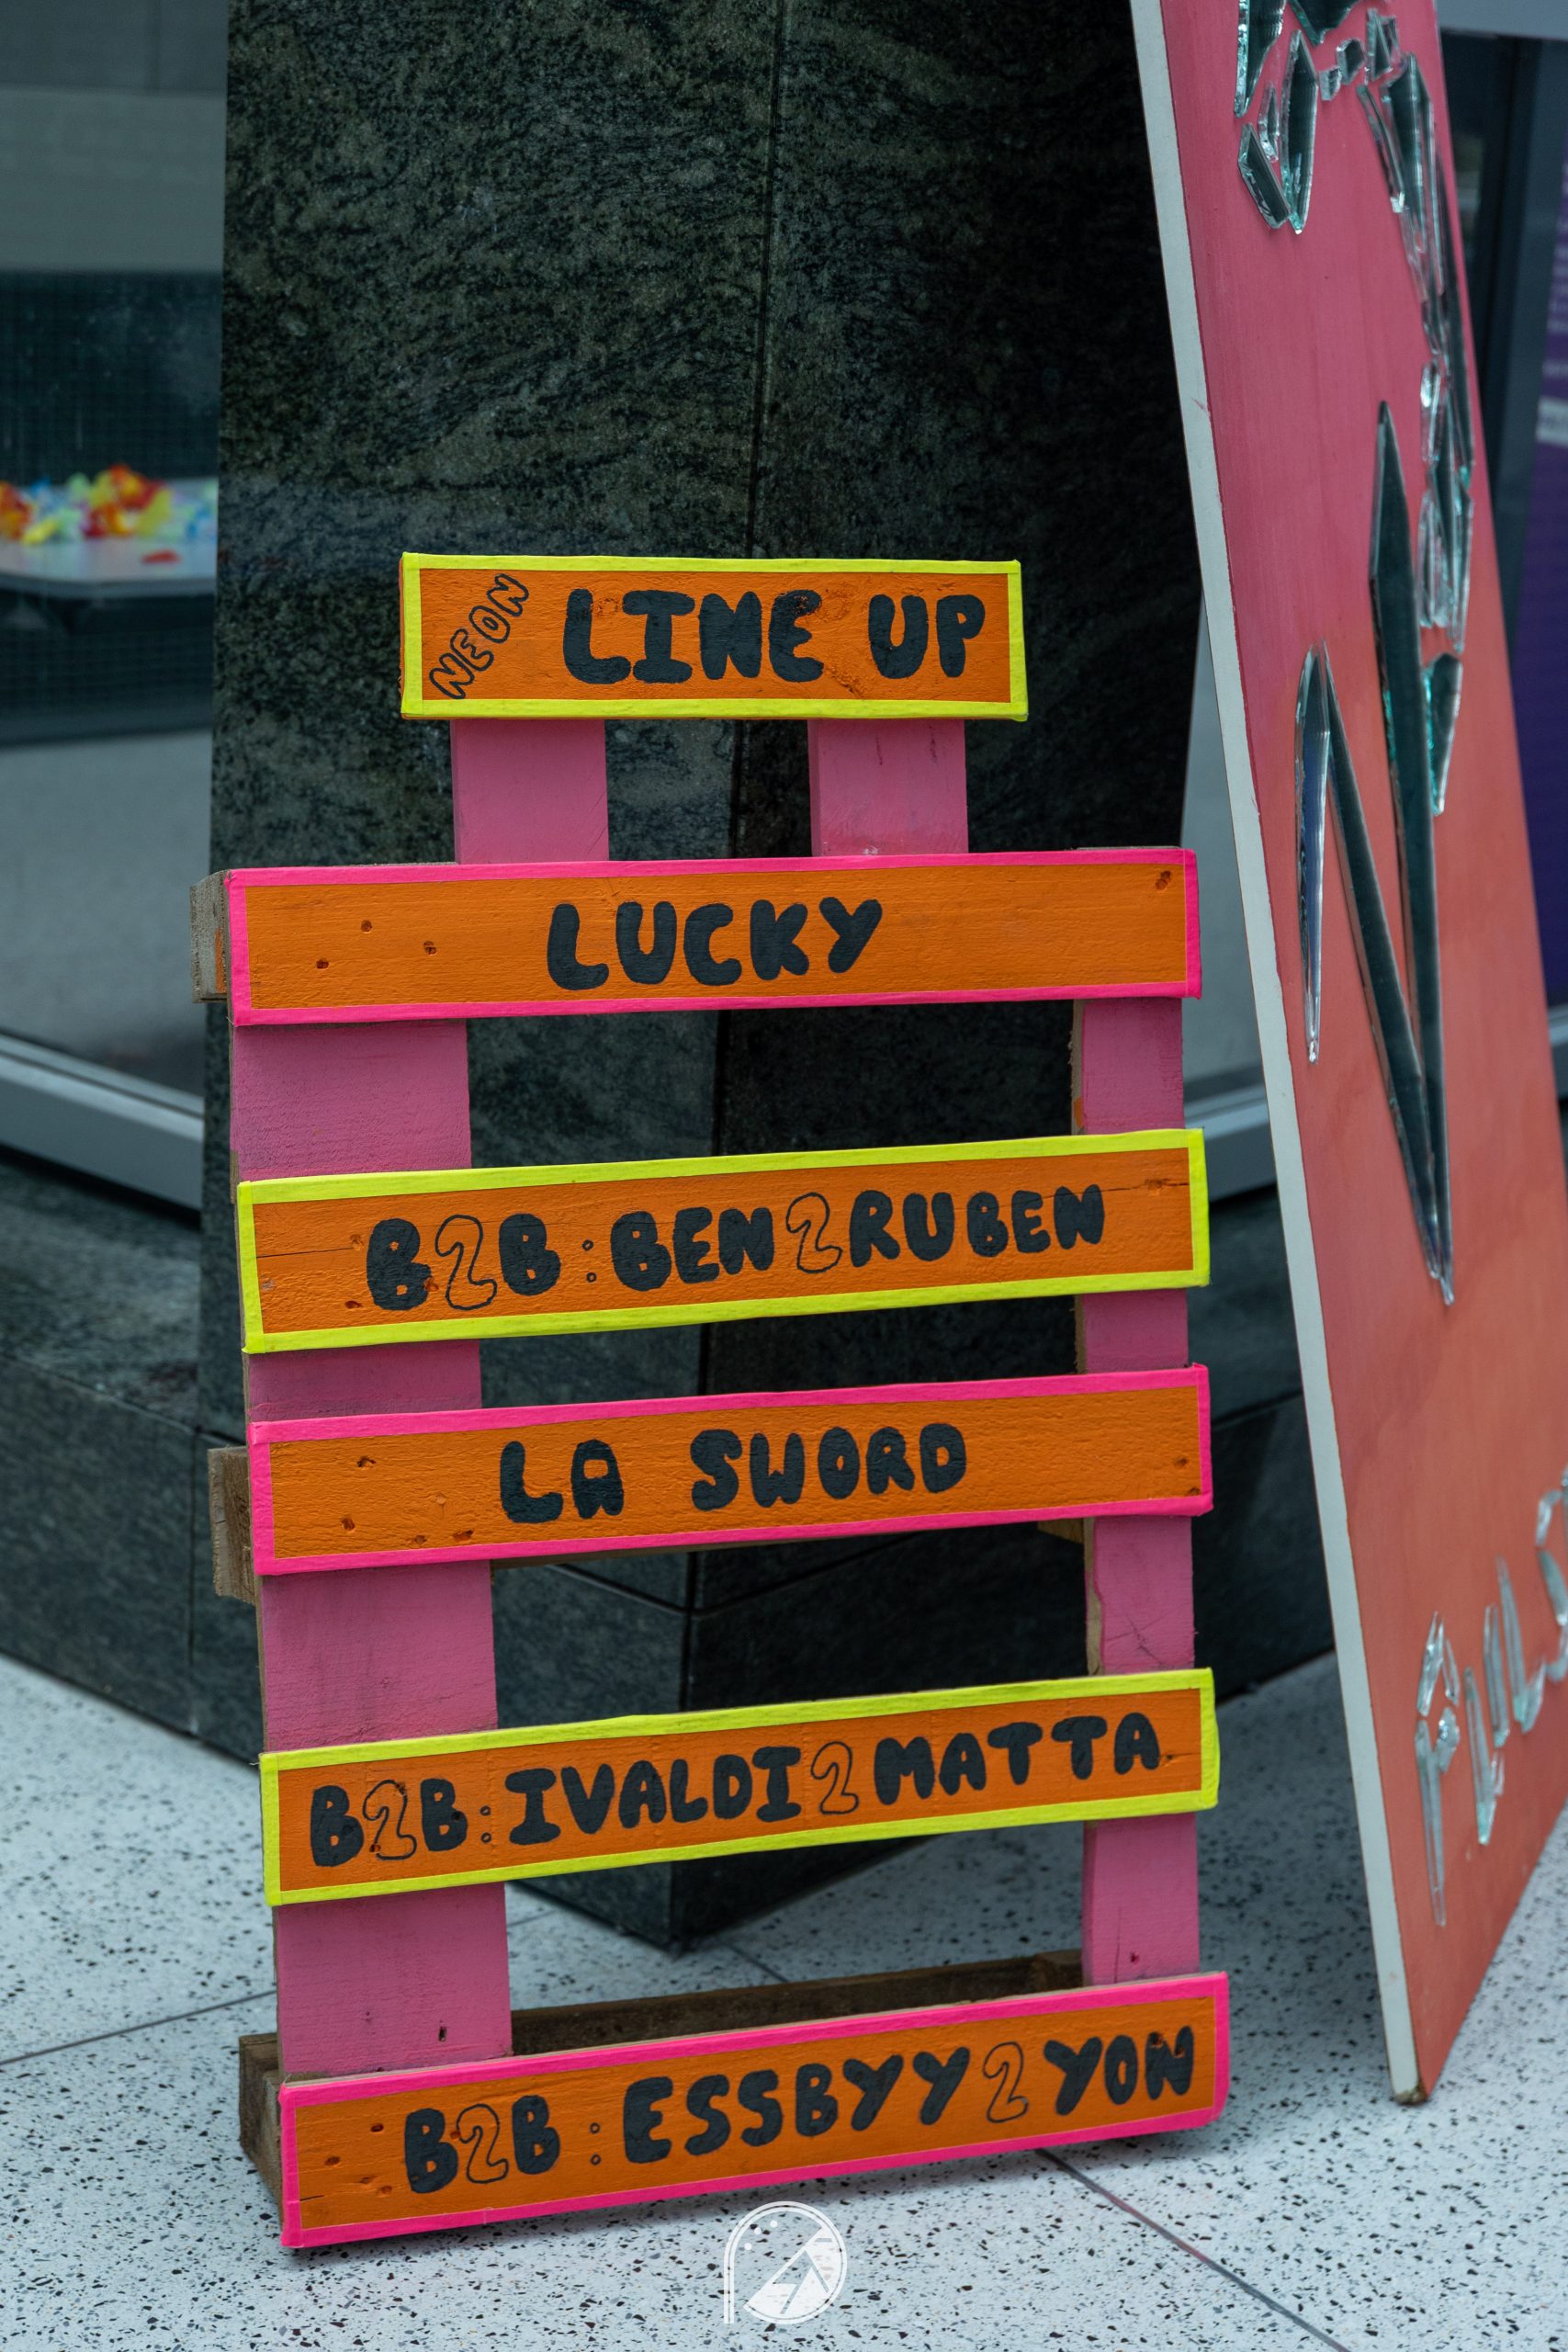 NEON LINE UP
LUCKY
B2B: BEN 2 RUBEN
LA SWORD
B2B: IVALDI 2 MATTA
B2B: ESSBYY 2 YON